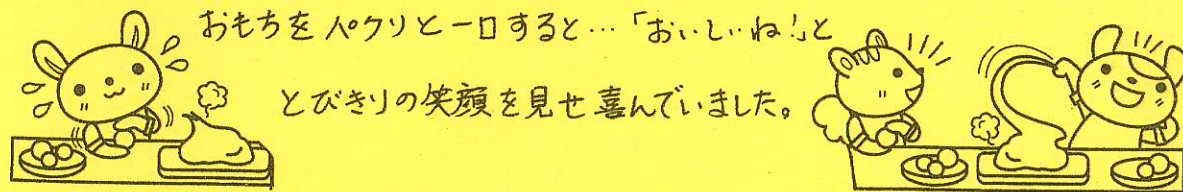 おもちをパクリと一口すると…「おいしいね!」と
とびきりの笑顔を見せ喜んでいました。